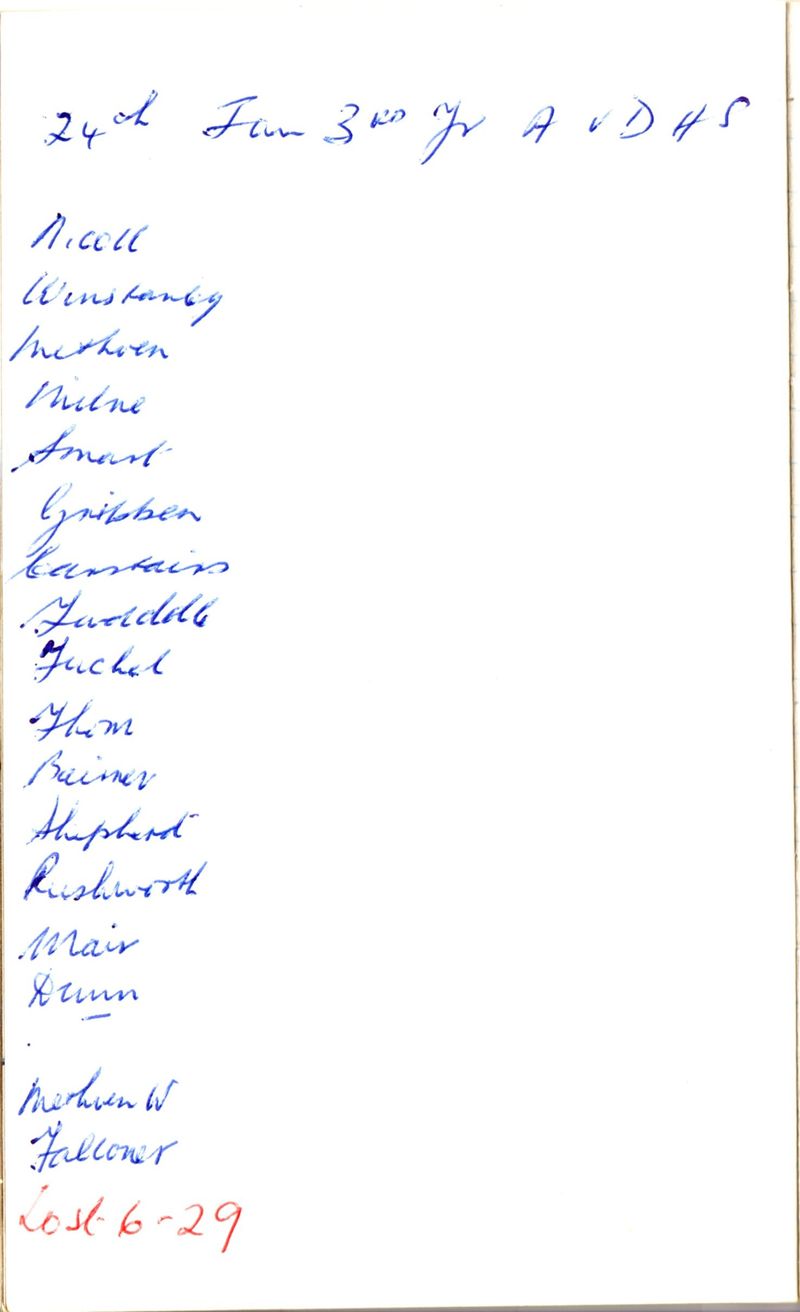 24th Jan 3RD Yr A v D H S
Nicoll
Winstanley
Methven
Milne
Smart
Gribben
Carstairs
Twaddle
Tuchel
Thom
Beimer
Shepherd
Rushworth
Mair
Dunn
Methven W
Falconer
Lost 6-29